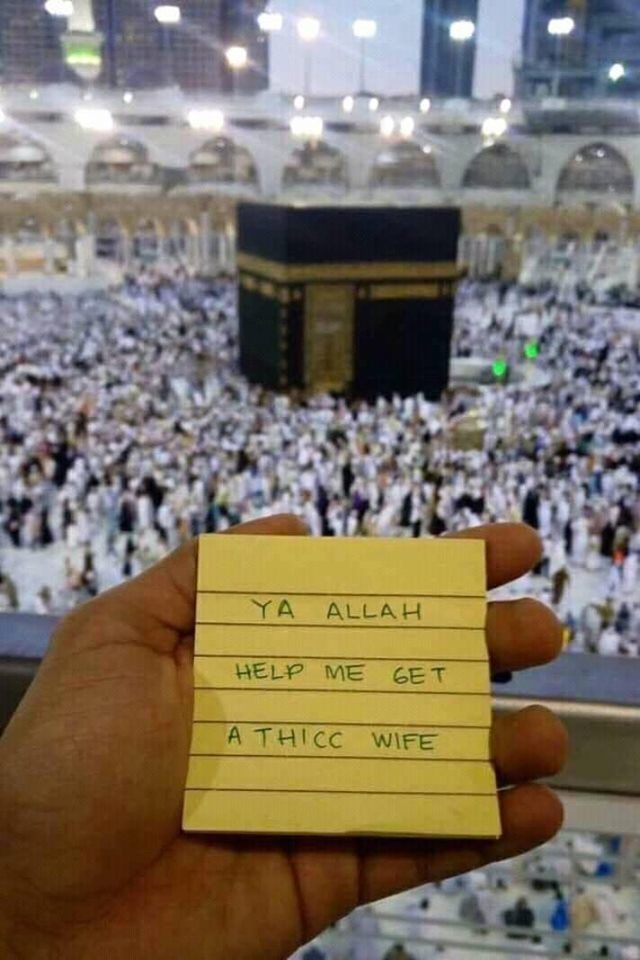 YA ALLAH
HELP ME GET
A THICC WIFE